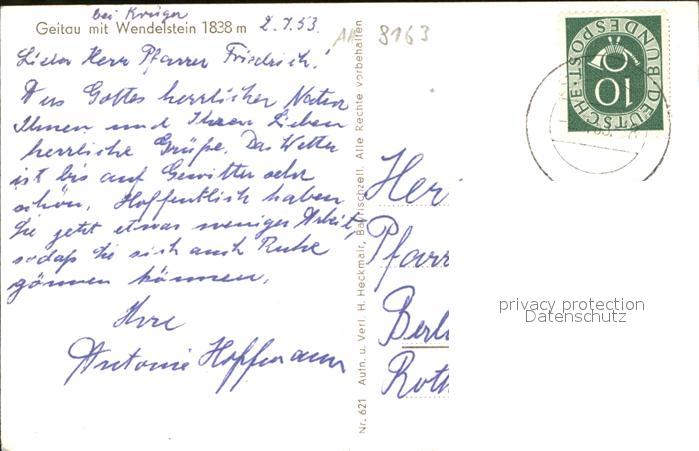 bei Krüger
Geitau mit Wendelstein 1838 m
2.7.53.
8163
Lieber Herr Pfarrer Friedrich!
Aus Gottes herrlicher Natur
Ihnen und Ihren Lieben
herrliche Grüße. Das Wetter
ist bis auf Gewitter sehr
schön. Hoffentlich haben
Sie jetzt etwas weniger Arbeit,
sodaß Sie sich auch Ruhe
gönnen können.
Ihre
Antonie Hoffmann
Nr. 621 Aufn. u. Verl. H. Heckmair, Bayrischzell. Alle Rechte vorbehalten
DEUTSCHE BUNDESPOST
10
Her
Pfarr
Berl
Roth
privacy protection
Datenschutz